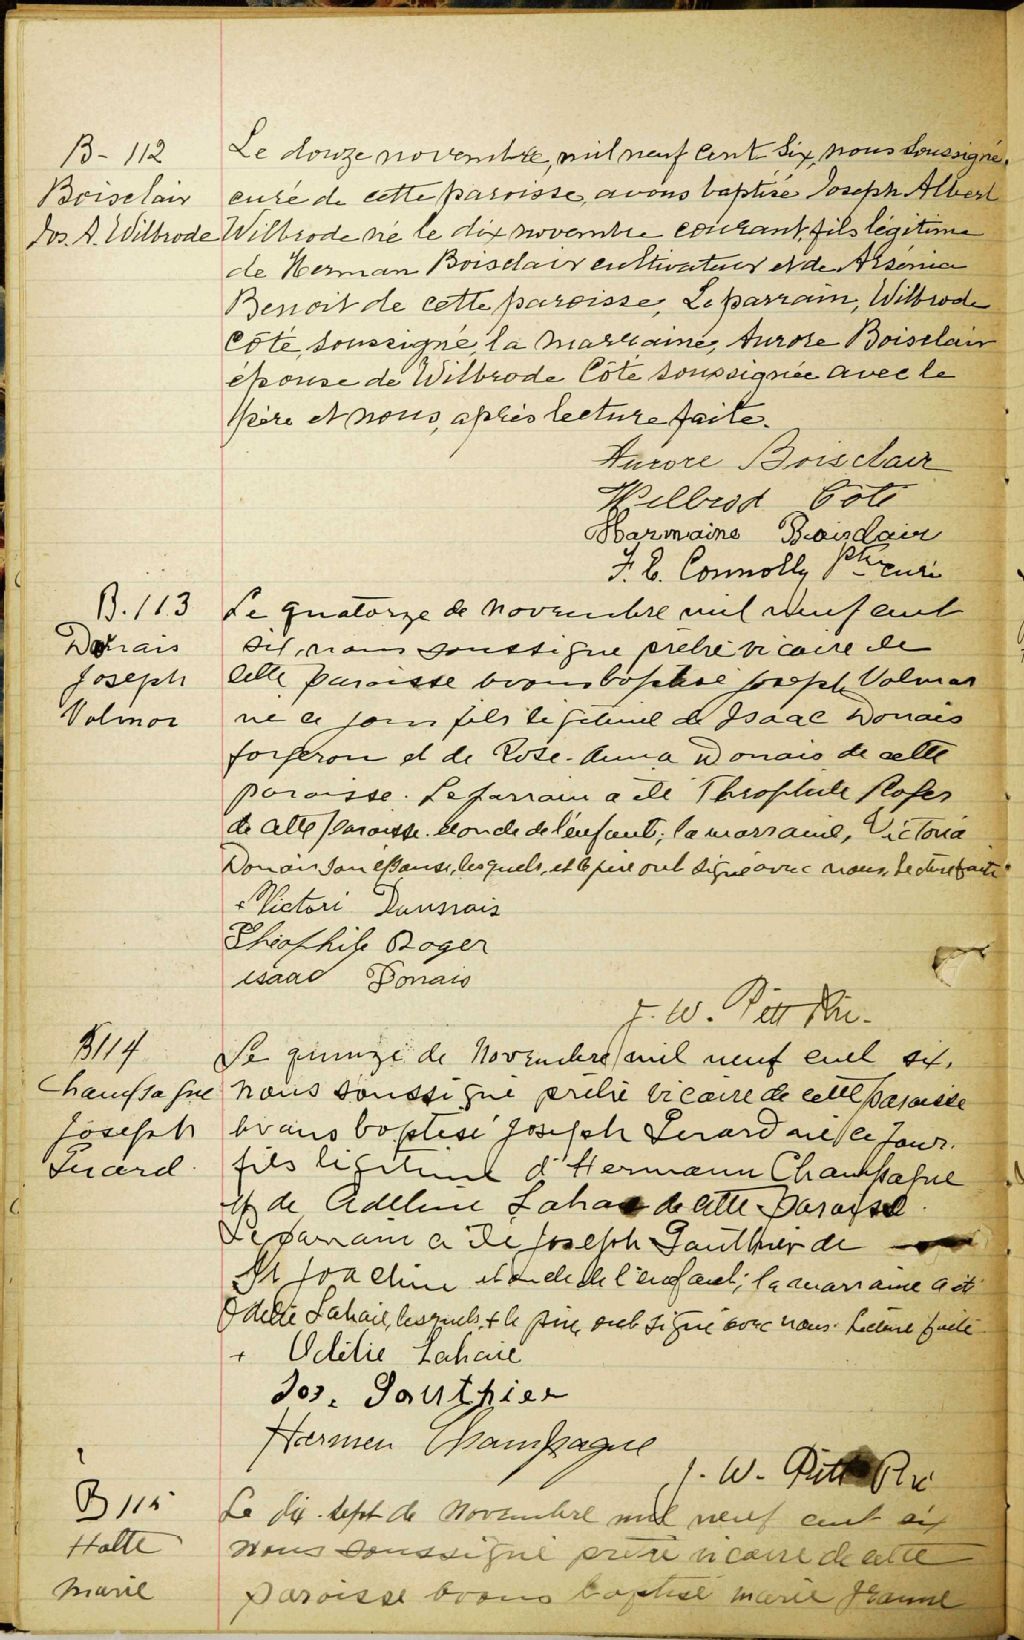 B- 112
Boisclair
Jos. A. Wilbrode
Le douze novembre, mil neuf cent six, nous soussigné,
curé de cette paroisse, avons baptisé Joseph Albert
Wilbrode né le dix novembre courant, fils légitime
de Herman Boisclair cultivateur et de Arsénia
Benoit de cette paroisse, Le parrain, Wilbrode
Côté, soussigné, la marraine, Aurore Boisclair
épouse de Wilbrode Côté soussignée avec le
père et nous, après lecture faite.
Aurore Boisclair
Wilbrod Côté
Harmaine Boisclair
F. E. Connolly Ptre curé
B. 113
Donais
Joseph
Volmar
Le quatorze de Novembre mil neuf cent
six, nous soussigné prêtre vicaire de
cette paroisse avons baptisé Joseph Volmar
né ce jour fils légitime de Isaac Donais
forgeron et de Rose-Anna Donais de cette
paroisse. Le parrain a été Théophile Roger
de cette paroisse oncle de l'enfant; la marraine, Victoria
Donais son épouse, lesquels, et le père ont signé avec nous. Lecture faite
+ Victori Daunais
Théophile Roger
isaac Donais
J. W. Pitt Ptre.
B114
Champagne
Joseph
Gérard
Le quinze de Novembre mil neuf cent six,
nous soussigné prêtre vicaire de cette paroisse
avons baptisé Joseph Gérard né ce jour.
fils légitime d'Hermann Champagne
et de Adeline Lahaie de cette paroisse.
Le parrain a été Joseph Gauthier de
St Joachim et oncle de l'enfant; la marraine a été
Odélie Lahaie, lesquels, + le père ont signé avec nous. Lecture faite
+ Odélie Lahaie
Jos. Gauthier
Hermen Champagne
J. W. Pitt Ptre
B 115
Halte
Marie
Le dix-sept de Novembre mil neuf cent six
nous soussigné prêtre vicaire de cette
paroisse avons baptisé Marie Jeanne